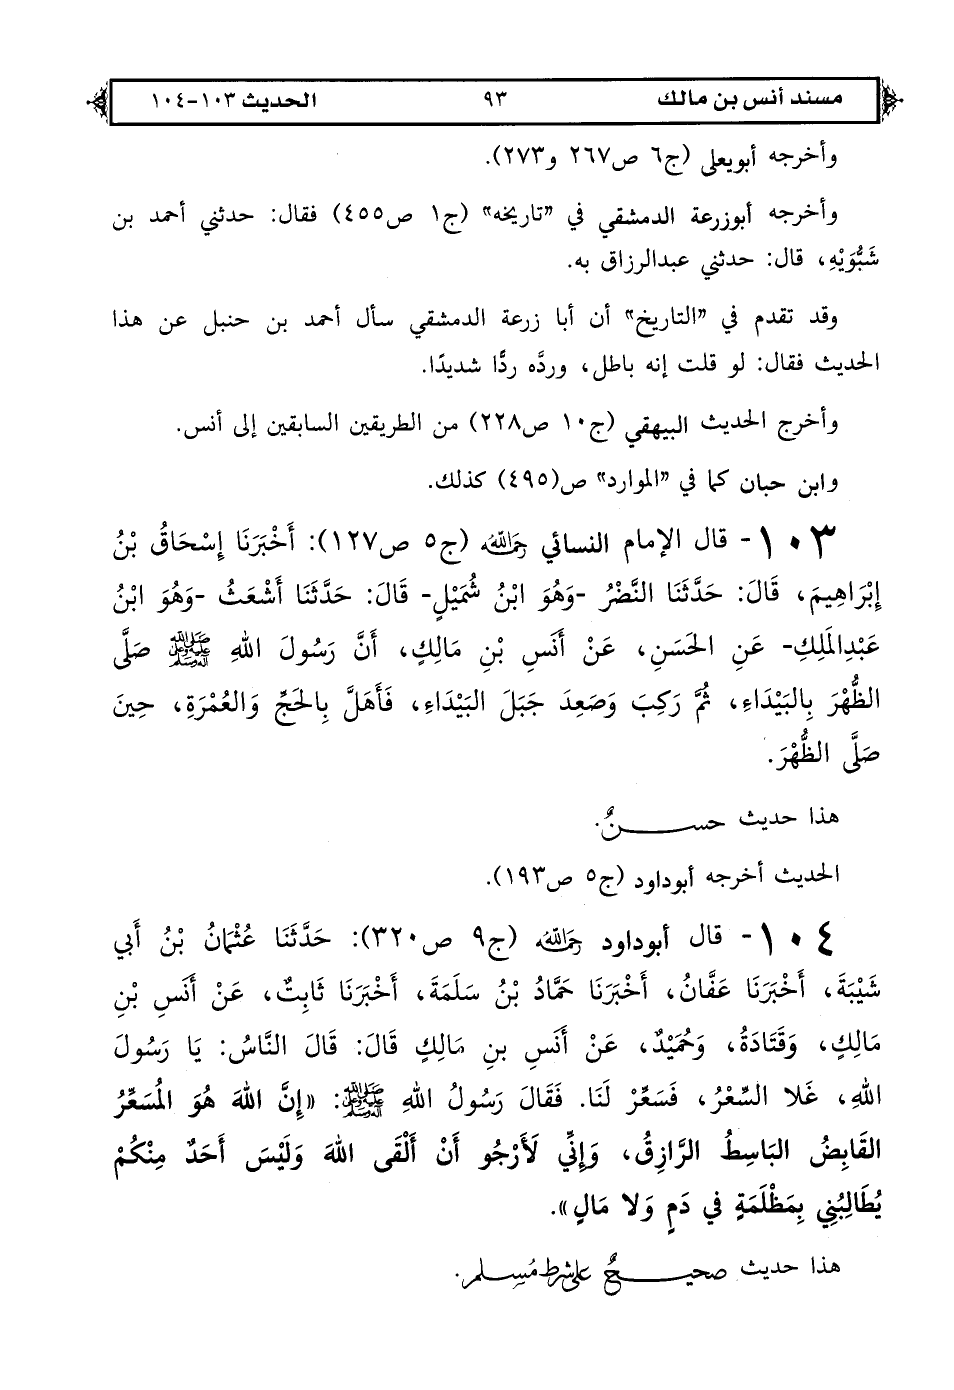 مسند أنس بن مالك ٩٣ الحديث ١٠٣-١٠٤
وأخرجه أبويعلى (ج٦ ص٢٦٧ و٢٧٣).
وأخرجه أبوزرعة الدمشقي في "تاريخه" (ج١ ص٤٥٥) فقال: حدثني أحمد بن
شَبُّوَيْهِ، قال: حدثني عبدالرزاق به.
وقد تقدم في "التاريخ" أن أبا زرعة الدمشقي سأل أحمد بن حنبل عن هذا
الحديث فقال: لو قلت إنه باطل، وردَّه ردًّا شديدًا.
وأخرج الحديث البيهقي (ج١٠ ص٢٢٨) من الطريقين السابقين إلى أنس.
وابن حبان كما في "الموارد" ص(٤٩٥) كذلك.
١٠٣- قال الإمام النسائي رحمه الله (ج٥ ص١٢٧): أَخْبَرَنَا إِسْحَاقُ بْنُ
إِبْرَاهِيمَ، قَالَ: حَدَّثَنَا النَّضْرُ -وَهُوَ ابْنُ شُمَيْلٍ- قَالَ: حَدَّثَنَا أَشْعَثُ -وَهُوَ ابْنُ
عَبْدِالْمَلِكِ- عَنِ الحَسَنِ، عَنْ أَنَسِ بْنِ مَالِكٍ، أَنَّ رَسُولَ اللهِ ﷺ صَلَّى
الظُّهْرَ بِالبَيْدَاءِ، ثُمَّ رَكِبَ وَصَعِدَ جَبَلَ البَيْدَاءِ، فَأَهَلَّ بِالحَجِّ وَالعُمْرَةِ، حِينَ
صَلَّى الظُّهْرَ.
هذا حديث حسنٌ.
الحديث أخرجه أبوداود (ج٥ ص١٩٣).
١٠٤- قال أبوداود رحمه الله (ج٩ ص٣٢٠): حَدَّثَنَا عُثْمَانُ بْنُ أَبِي
شَيْبَةَ، أَخْبَرَنَا عَفَّانُ، أَخْبَرَنَا حَمَّادُ بْنُ سَلَمَةَ، أَخْبَرَنَا ثَابِتٌ، عَنْ أَنَسِ بْنِ
مَالِكٍ، وَقَتَادَةُ، وَحُمَيْدٌ، عَنْ أَنَسِ بنِ مَالِكٍ قَالَ: قَالَ النَّاسُ: يَا رَسُولَ
اللهِ، غَلا السِّعْرُ، فَسَعِّرْ لَنَا. فَقَالَ رَسُولُ اللهِ ﷺ: «إِنَّ اللهَ هُوَ الْمُسَعِّرُ
القَابِضُ البَاسِطُ الرَّازِقُ، وَإِنِّي لَأَرْجُو أَنْ أَلْقَى اللهَ وَلَيْسَ أَحَدٌ مِنْكُمْ
يُطَالِبُنِي بِمَظْلَمَةٍ فِي دَمٍ وَلا مَالٍ».
هذا حديث صحيحٌ على شرط مُسلم.